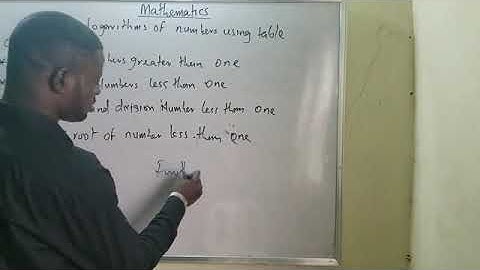 Mathematics
logarithms of numbers using table
greater than one
numbers less than one
and division Number less than one
root of number less than one